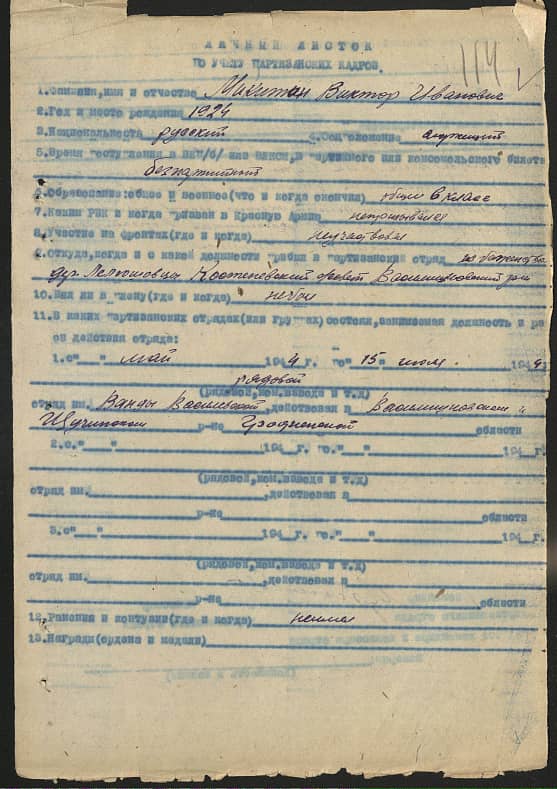 ЛИЧНЫЙ ЛИСТОК
ПО УЧЕТУ ПАРТИЗАНСКИХ КАДРОВ.
114
1.Фамилия,имя и отчество Микитан Виктор Иванович
2.Год и место рождения 1924
3.Национальность русский 4.Соцположение служащий
5.Время вступления в ВКП/б/ или ВЛКСМ, партийного или комсомольского билета
безпартийный
6.Образование:общее и военное(что и когда окончил) общее 6 класс
7.Каким РВК и когда призван в Красную Армию непризывался
8.Участие на фронтах(где и когда) неучаствовал
9.Откуда,когда и с какой должности прибыл в партизанский отряд
дер. Василишковский
10.Был ли в плену(где и когда) небыл
11.В каких партизанских отрядах(или группах)состоял,занимаемая должность и ра
он действия отряда:
1.с"__" май 1944 г. по"15" июль 194
рядовой
(рядовой,ком.взвода и т.д)
отряд им. Ванды Василевской,действовал в Василишковском и
Щучинском р-не Гродненской области
2.с."__" 194_г. по."__" 194_г.
(рядовой,ком.взвода и т.д)
отряд им. ,действовал в
р-не области
3.с"__" 194_г. по."__" 194_г.
(рядовой,ком.взвода и т.д)
отряд им. ,действовал в
р-не области
12.Ранения и контузии(где и когда) неимел
13.Награды(ордена и медали)